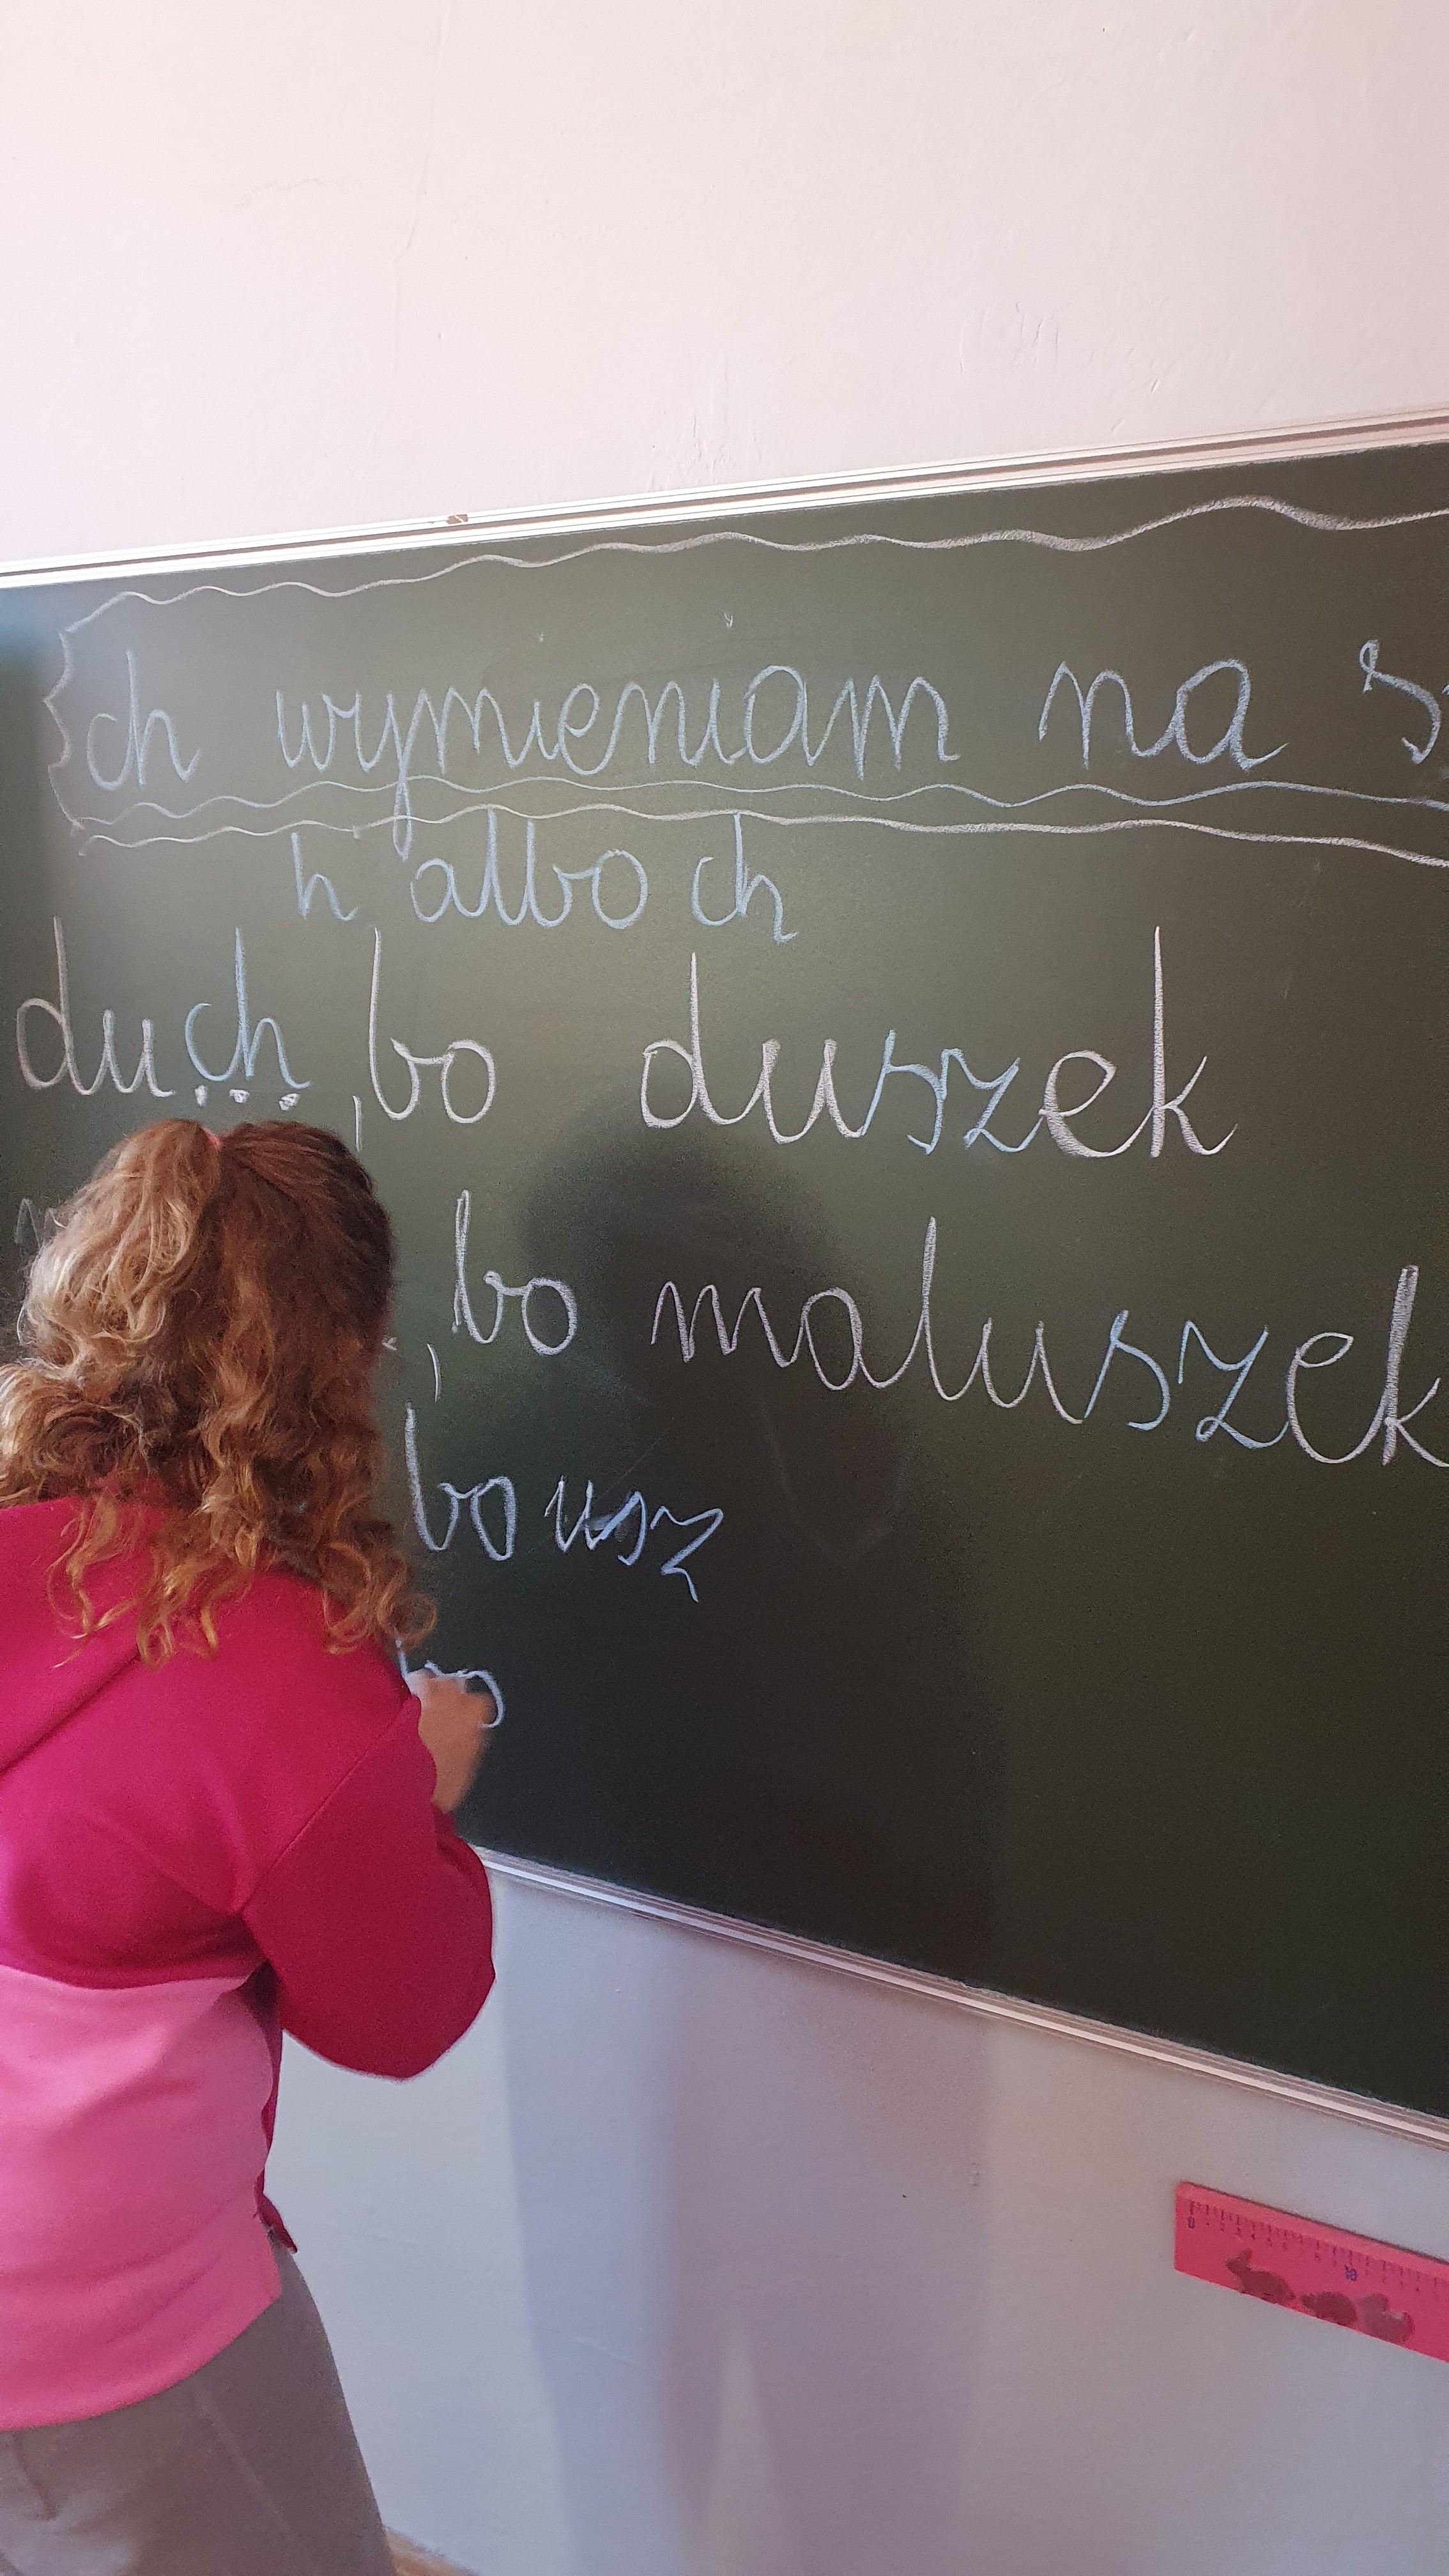 ch wymieniam na
h albo ch
duch, bo duszek
, bo maluszek
bo usz
bo
0 10